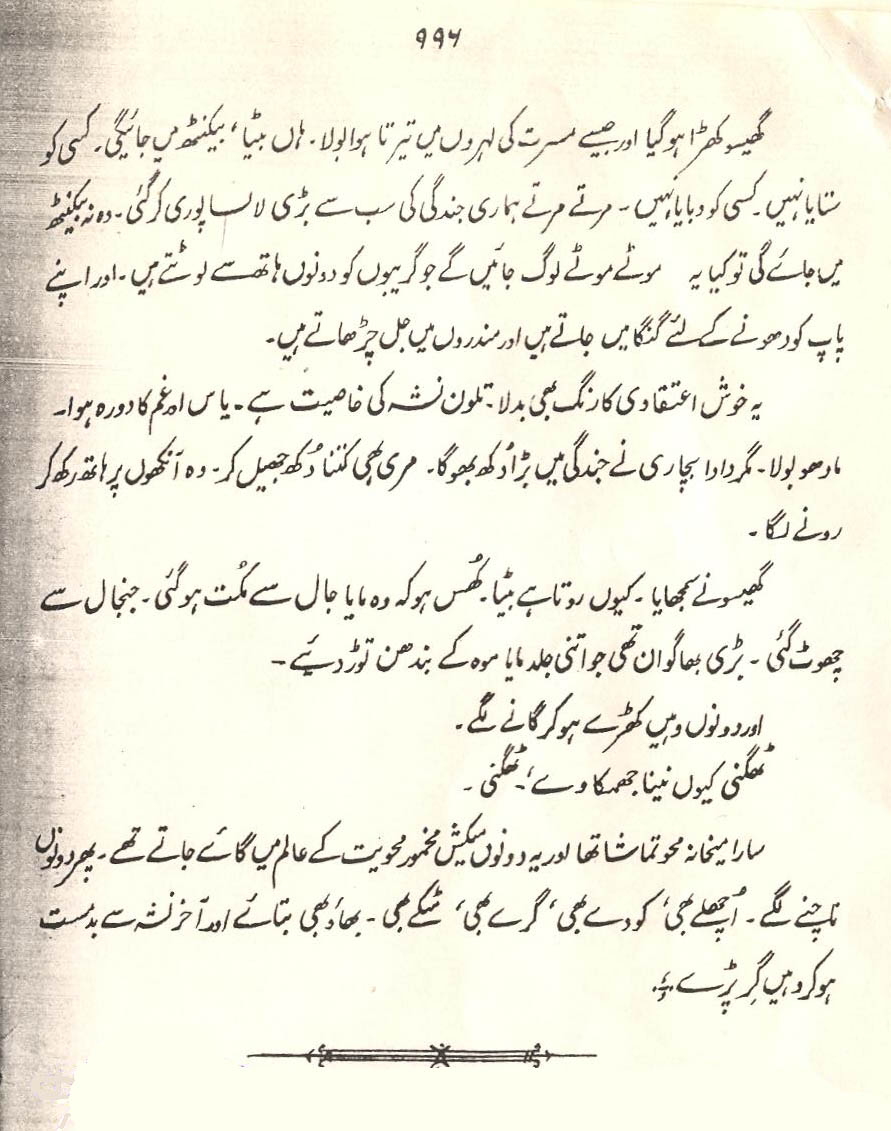 ۹۹۶
گھیسو کھڑا ہو گیا اور جیسے مسرت کی لہروں میں تیرتا ہوا بولا۔ ہاں بیٹا، بیکنٹھ میں جائیگی۔ کسی کو
ستایا نہیں۔ کسی کو دبایا نہیں۔ مرتے مرتے ہماری جندگی کی سب سے بڑی لالسا پوری کر گئی۔ وہ نہ بیکنٹھ
میں جائے گی تو کیا یہ موٹے موٹے لوگ جائیں گے جو گریبوں کو دونوں ہاتھ سے لوٹتے ہیں۔ اور اپنے
پاپ کو دھونے کے لئے گنگا میں جاتے ہیں اور مندروں میں جل چڑھاتے ہیں۔
یہ خوش اعتقادی کا رنگ بھی بدلا۔ تلون نشہ کی خاصیت ہے۔ یاس اور غم کا دورہ ہوا۔
مادھو بولا۔ مگر دادا بچاری نے جندگی میں بڑا دُکھ بھوگا۔ مری بھی کتنا دُکھ جھیل کر۔ وہ آنکھوں پر ہاتھ رکھ کر
رونے لگا۔
گھیسو نے سمجھایا۔ کیوں روتا ہے بیٹا۔ کھُس ہو کہ وہ مایا جال سے مُکت ہو گئی۔ جنجال سے
چھوٹ گئی۔ بڑی بھاگوان تھی جو اتنی جلد مایا موہ کے بندھن توڑ دیئے۔
اور دونوں وہیں کھڑے ہو کر گانے لگے۔
ٹھگنی کیوں نینا جھمکاوے، ٹھگنی۔
سارا میخانہ محو تماشا تھا اور یہ دونوں میکش مخمور محویت کے عالم میں گائے جاتے تھے۔ پھر دونوں
ناچنے لگے۔ اُچھلے بھی، کودے بھی، گرے بھی، مٹکے بھی۔ بھاؤ بھی بتائے اور آخر نشہ سے بدمست
ہو کر وہیں گِر پڑے۔